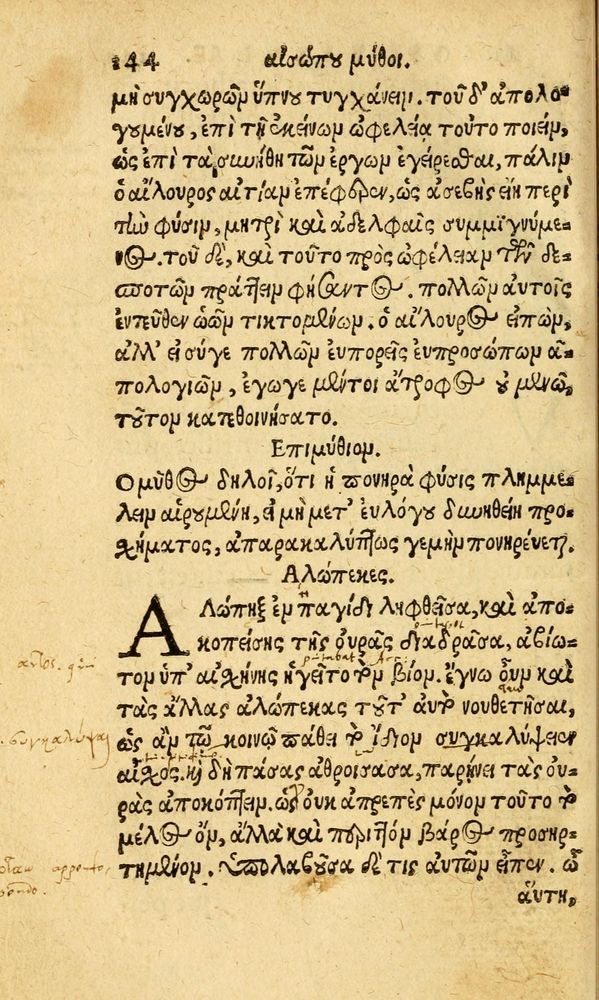 144 αἰσώπου μῦθοι.
μὴ συγχωρῶν ὕπνου τυγχάνειν. τοῦ δ' ἀπολο-
γουμένου, ἐπὶ τῇ ἐκείνων ὠφελείᾳ τοῦτο ποιεῖν,
ὡς ἐπὶ τὰ συνήθη τῶν ἔργων ἐγείρεσθαι, πάλιν
ὁ αἴλουρος αἰτίαν ἐπέφερεν, ὡς ἀσεβὴς εἴη περὶ
τὴν φύσιν, μητρὶ καὶ ἀδελφαῖς συμμιγνύμε-
νος. τοῦ δὲ, καὶ τοῦτο πρὸς ὠφέλειαν τῶν δε-
σποτῶν πράττειν φήσαντος. πολλῶν αὐτοῖς
ἐντεῦθεν ὠῶν τικτομένων. ὁ αἴλουρος εἰπὼν,
ἀλλ' εἰ σύγε πολλῶν εὐπορεῖς εὐπροσώπων ἀ-
πολογιῶν, ἔγωγε μέντοι ἄτροφος οὐ μενῶ,
τοῦτον κατεθοινήσατο.
Επιμύθιον.
Ο μῦθος δηλοῖ, ὅτι ἡ πονηρὰ φύσις πλημμε-
λεῖν αἱρουμένη, εἰ μὴ μετ' εὐλόγου δυνηθείη προ-
σχήματος, ἀπαρακαλύπτως γε μὴν πονηρεύεται.
Αλώπεκες.
ΑΛώπηξ ἐν παγίδι ληφθεῖσα, καὶ ἀπο-
κοπείσης τῆς οὐρᾶς διαδρᾶσα, ἀβίω-
τον ὑπ' αἰσχύνης ἡγεῖτο τὸν βίον. ἔγνω οὖν καὶ
τὰς ἄλλας ἀλώπεκας τοῦτ' αὐτὸ νουθετῆσαι,
ὡς ἂν τῷ κοινῷ πάθει τὸ ἴδιον συγκαλύψειεν
αἶσχος. καὶ δὴ πάσας ἀθροίσασα, παρῄνει τὰς οὐ-
ρὰς ἀποκόπτειν. ὡς οὐκ ἀπρεπὲς μόνον τοῦτο τὸ
μέλος ὂν, ἀλλὰ καὶ περιττὸν βάρος προσηρ-
τημένον. ὑπολαβοῦσα δέ τις αὐτῶν εἶπεν. ὦ
αὕτη,